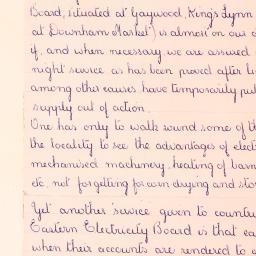 Board, situated at Gaywood, King's Lynn
at Downham Market) is almost on our d
if, and when necessary, we are assured
night service as has been proved after li
among other causes have temporarily put
supply out of action.
One has only to walk round some of th
the locality to see the advantages of elect
mechanised machinery, heating of barn
etc, not forgetting corn drying and sto
Yet another service given to countr
Eastern Electricity Board is that ea
when their accounts are rendered to a